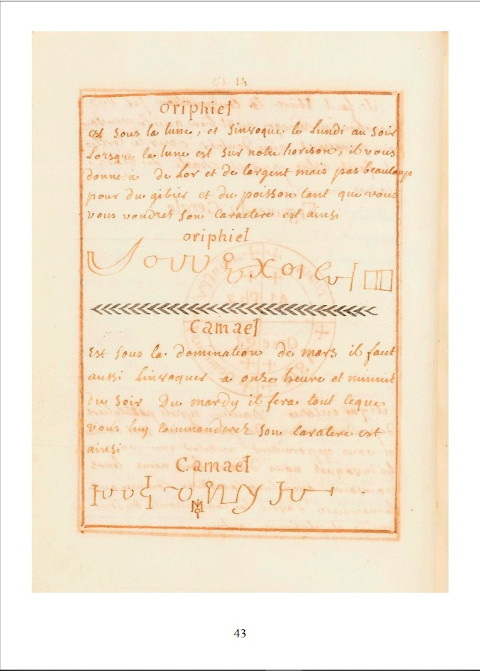 oriphiel
est sous la lune, et sinvoque le lundi au soir
Lorsque la lune est sur notre horison, il vous
donne a de Lor et de largent mais pas beaucoup
pour du gibier et du poisson tant que vous
vous voudrez son caractere est ainsi
oriphiel
Camael
Est sous la domination de mars il faut
aussi Linvoquer a onse heure et minuit
du soir Du mardy il fera tout ceque
vous luy commanderez son caractere est
ainsi
Camael
43